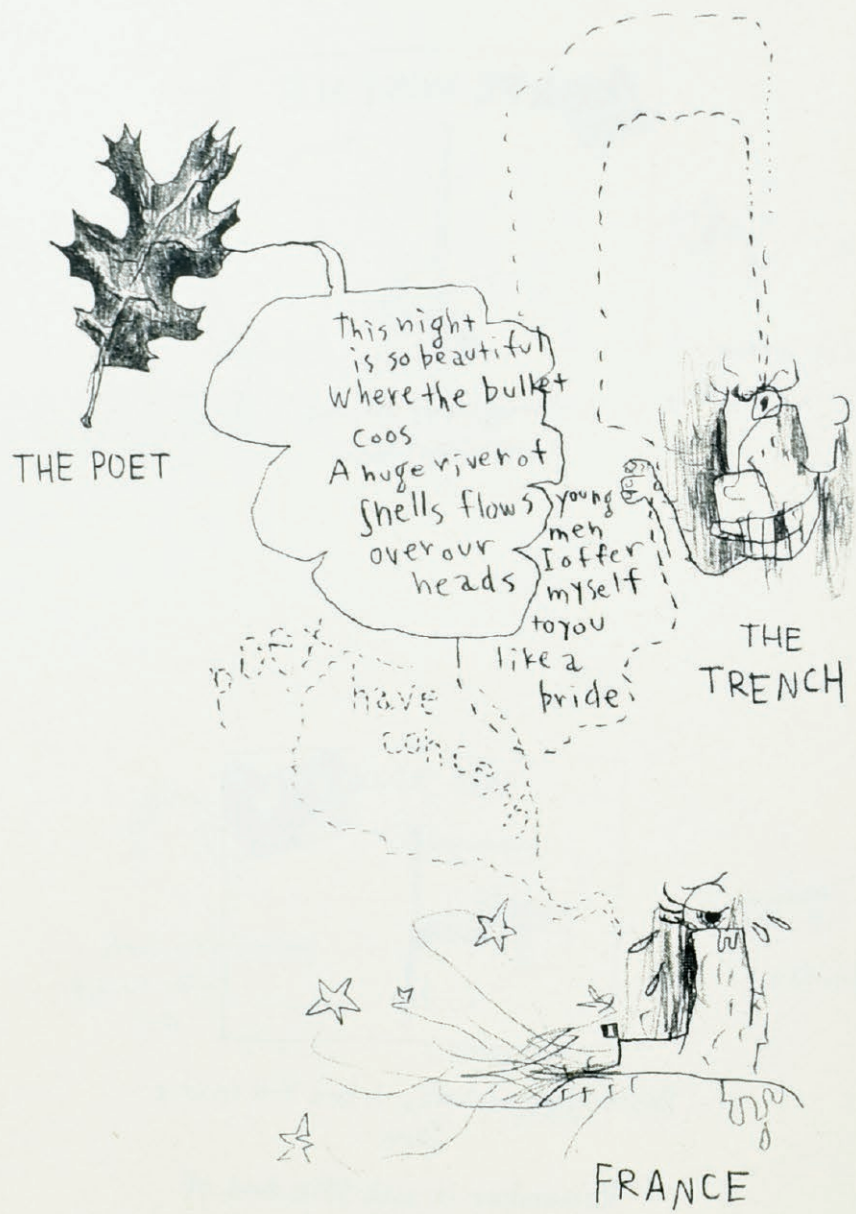 THE POET
This night
is so beautiful
Where the bullet
coos
A huge river of
shells flows
over our
heads
young
men
I offer
myself
to you
like a
bride
THE
TRENCH
poets
have
concerns
FRANCE